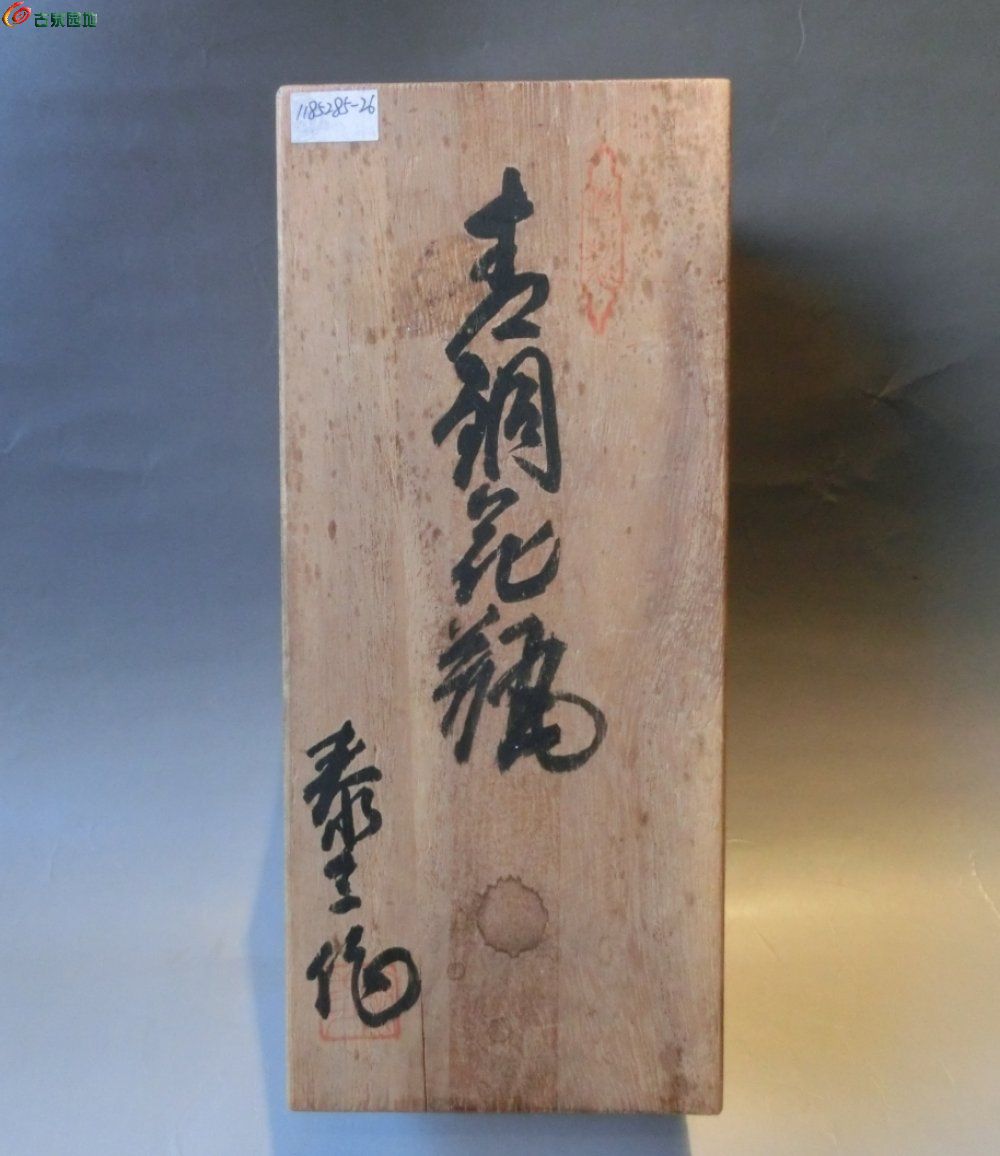 古泉园地
1185285-26
青銅花瓶
泰生作